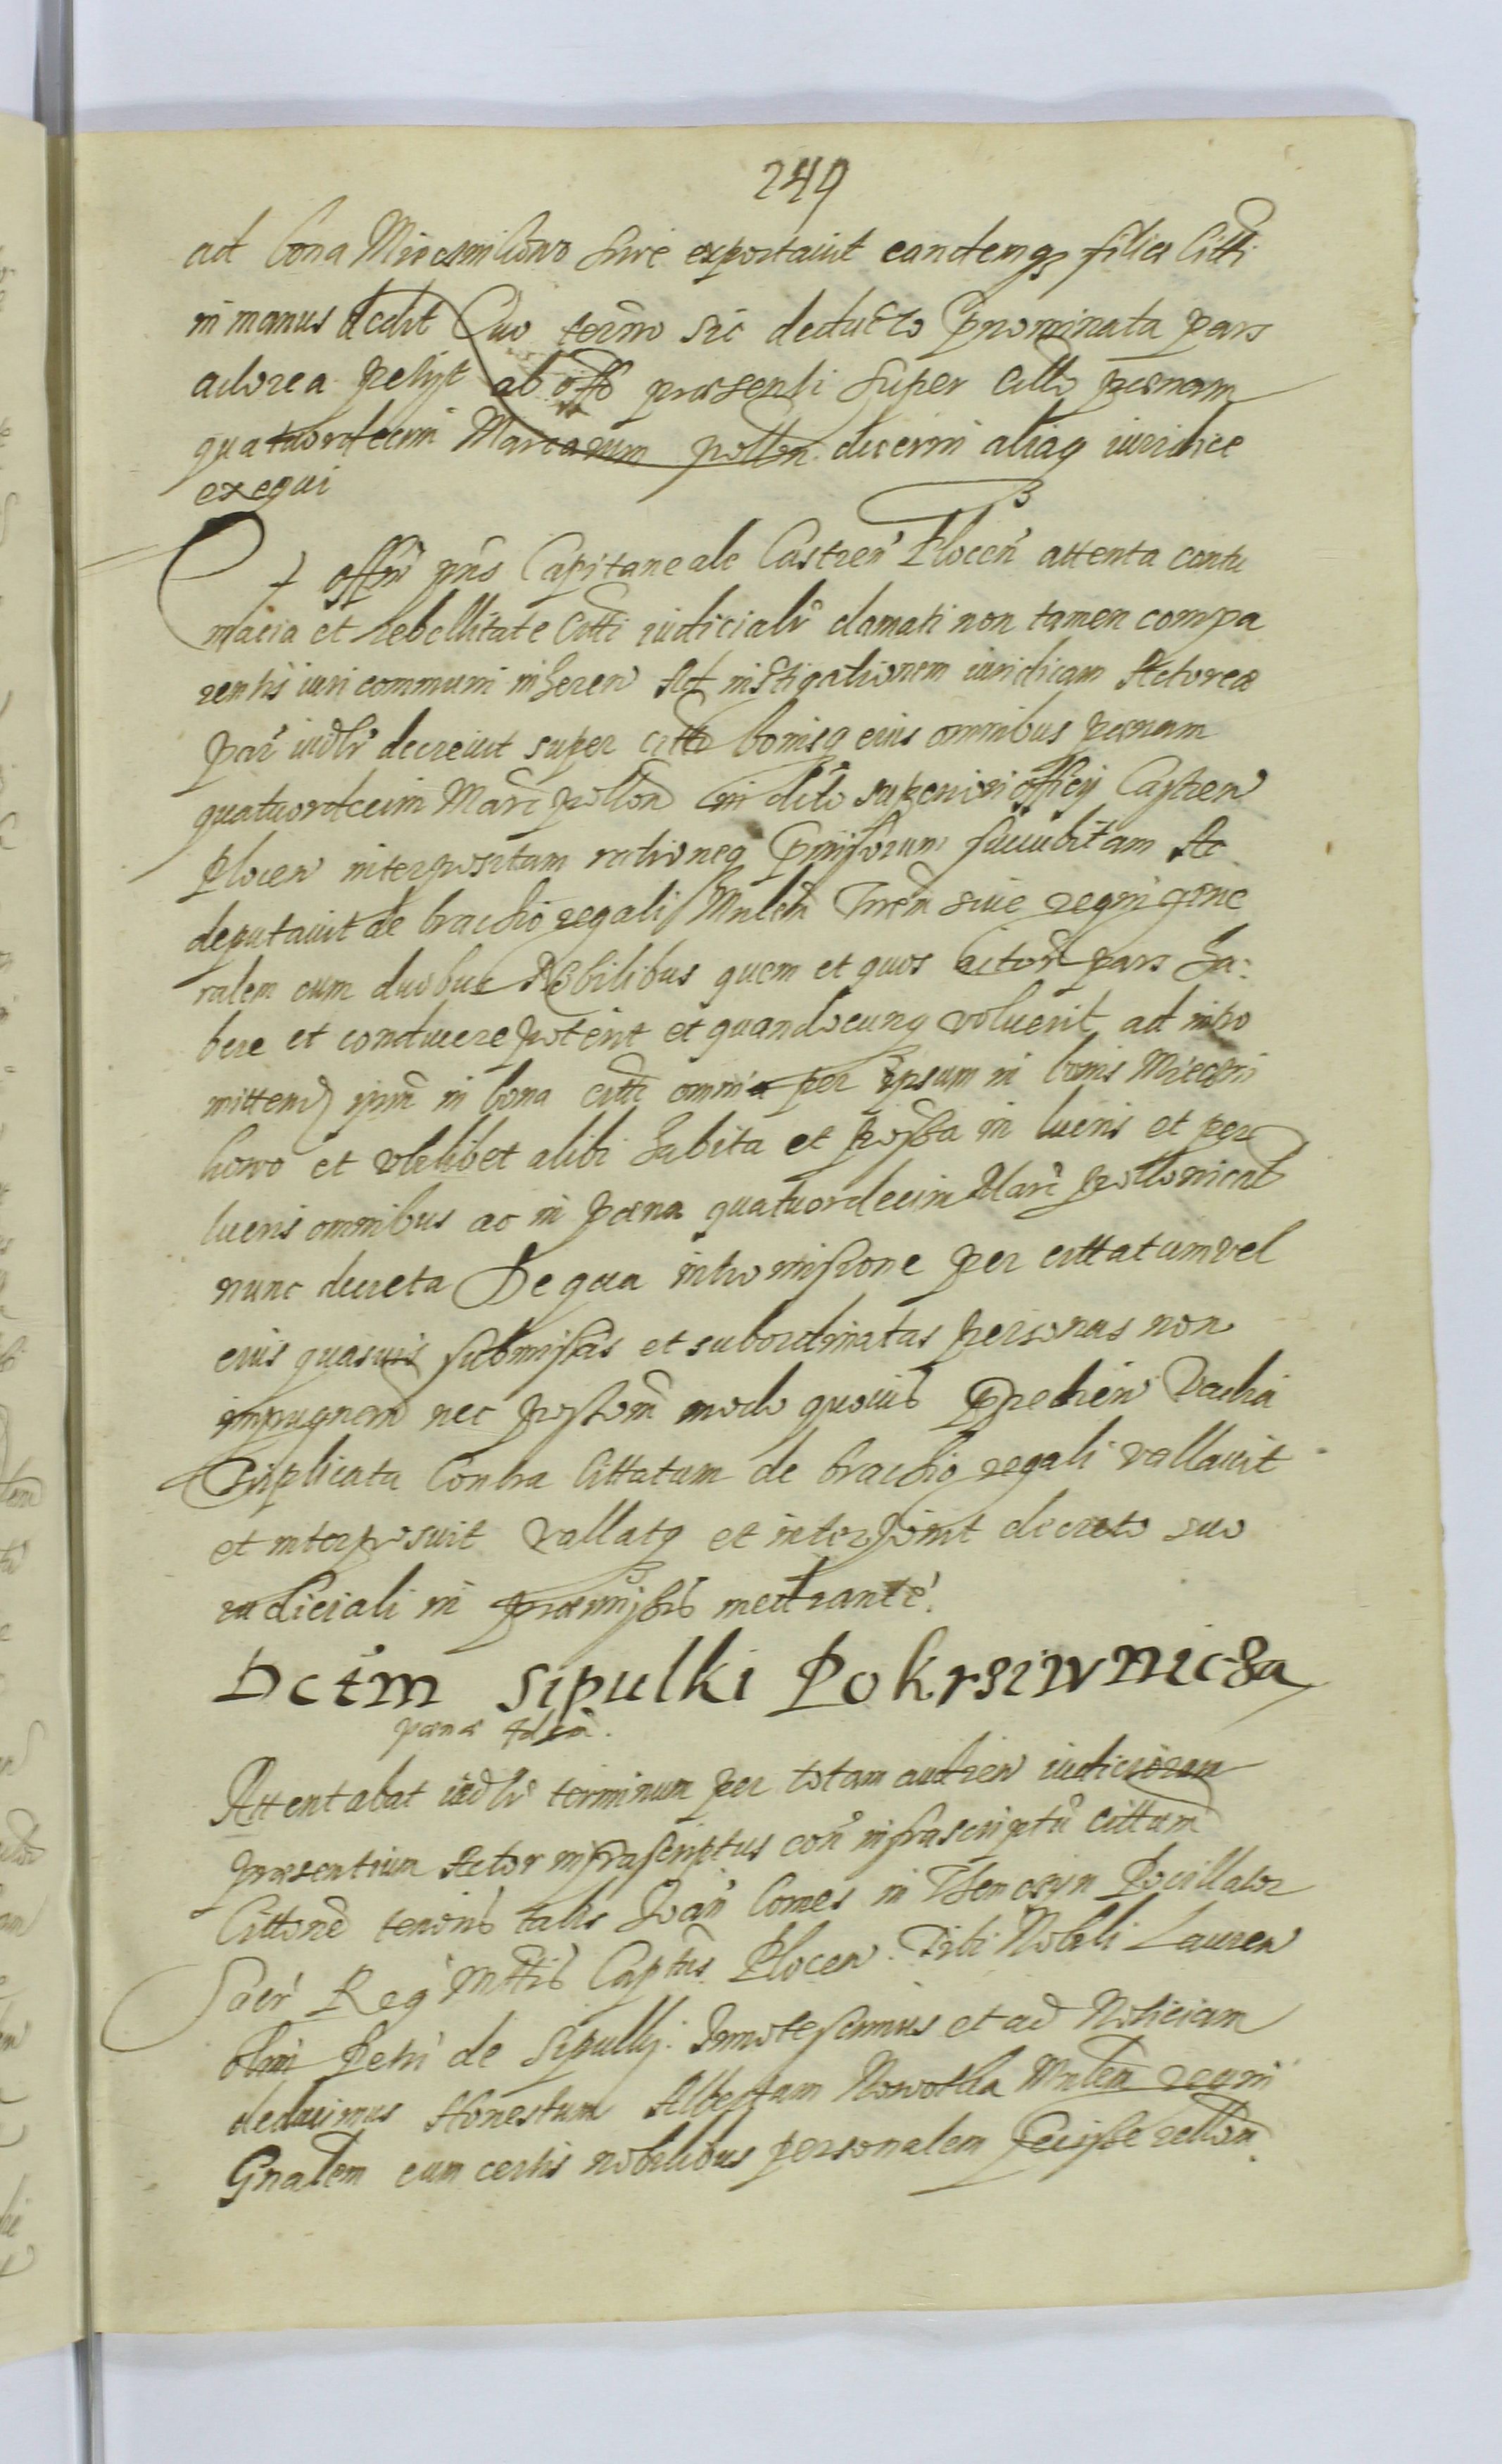 249
ad bona hinc exportavit eandemq filia Citti
in manus dedit Quo termo sic deducto pnominata pars
actorea petyt ab offo præsenti super citto pænam
quatuordecim Marcarum pollon decerni aliaq iuridice
exequi
Et offm pns Capitaneale Castren Plocen attenta contu
macia et rebellitate Citti iudicialr clamati non tamen compa
rentis iuri communi inheren Ad instigationem iuridicam Actoreæ
par iudlr decrevit super citto bonisq eius omnibus pænam
quatuordecim Marc pollon in dicto officy Castren
Plocen interpositam rationeq pmissorum succubitam Ac
deputavit de brachio regali Mnlem Trem sive regni gene
ralem cum duobus Nobilibus quem et quos actor pars ha:
bere et conducere poterit et quandocunq voluerit ad intro
mittend ipm in bona citti omnia per ipsum in bonis
et vbelibet alibi habita et possa in lucris et per
lucris omnibus ac in pæna quatuordecim Marc pollonicad
nunc decreta De qua intromissione per cittatum vel
eius quasuis submissas et subordinatas personas non
impugnend nec modo quovis Vadia
triplicata Contra Cittatum de brachio regali vallavit
et interposuit vallatq et interponit decreto suo
iudiciali in præmissis mediante.
Dctm Sipulki Pokrsiwnicza
pænæ
Attentabat iudlr terminum per totam audien iudiciorum
præsentium Actor infrascriptus con infrascriptu cittum
Cittone tenoris talis Joan Comes in Thenczyn Pocillator
Sacr Reg Mttis Captus Plocen Tibi Nobili Lauren
olim Petri de Sipulky. Innotescimus et ad Noticiam
deducimus Honestum Albertum Mnlem regni
Gnalem cum certis nobilibus personalem fecisse rellom